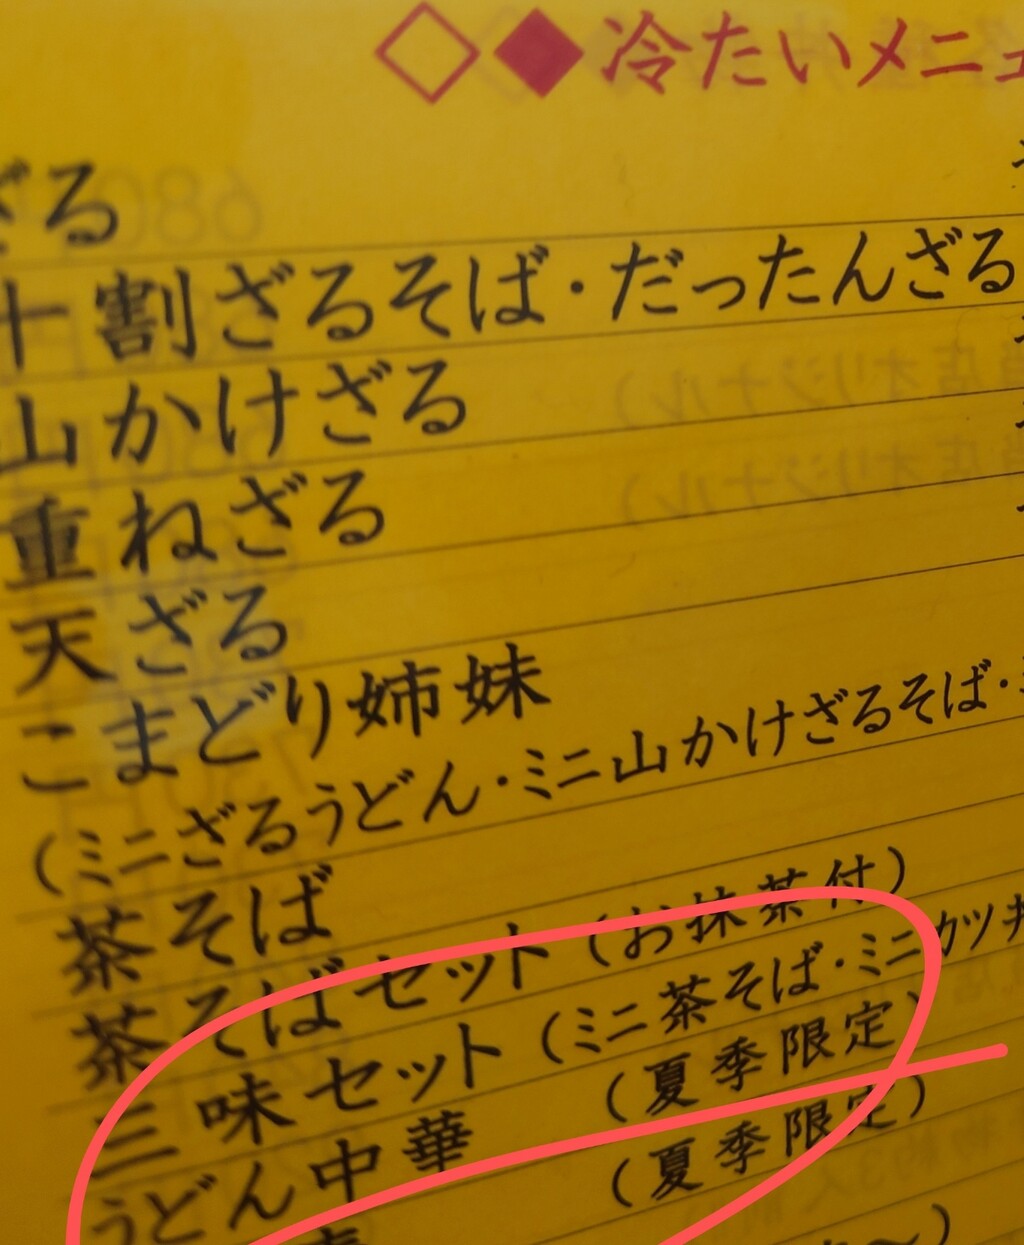 ◇◆冷たいメニュ
ざる
十割ざるそば・だったんざる
山かけざる
重ねざる
天ざる
こまどり姉妹
(ミニざるうどん・ミニ山かけざるそば・
茶そば
茶そばセット(お抹茶付)
三味セット(ミニ茶そば・ミニカツ丼
うどん中華 (夏季限定)
(夏季限定)